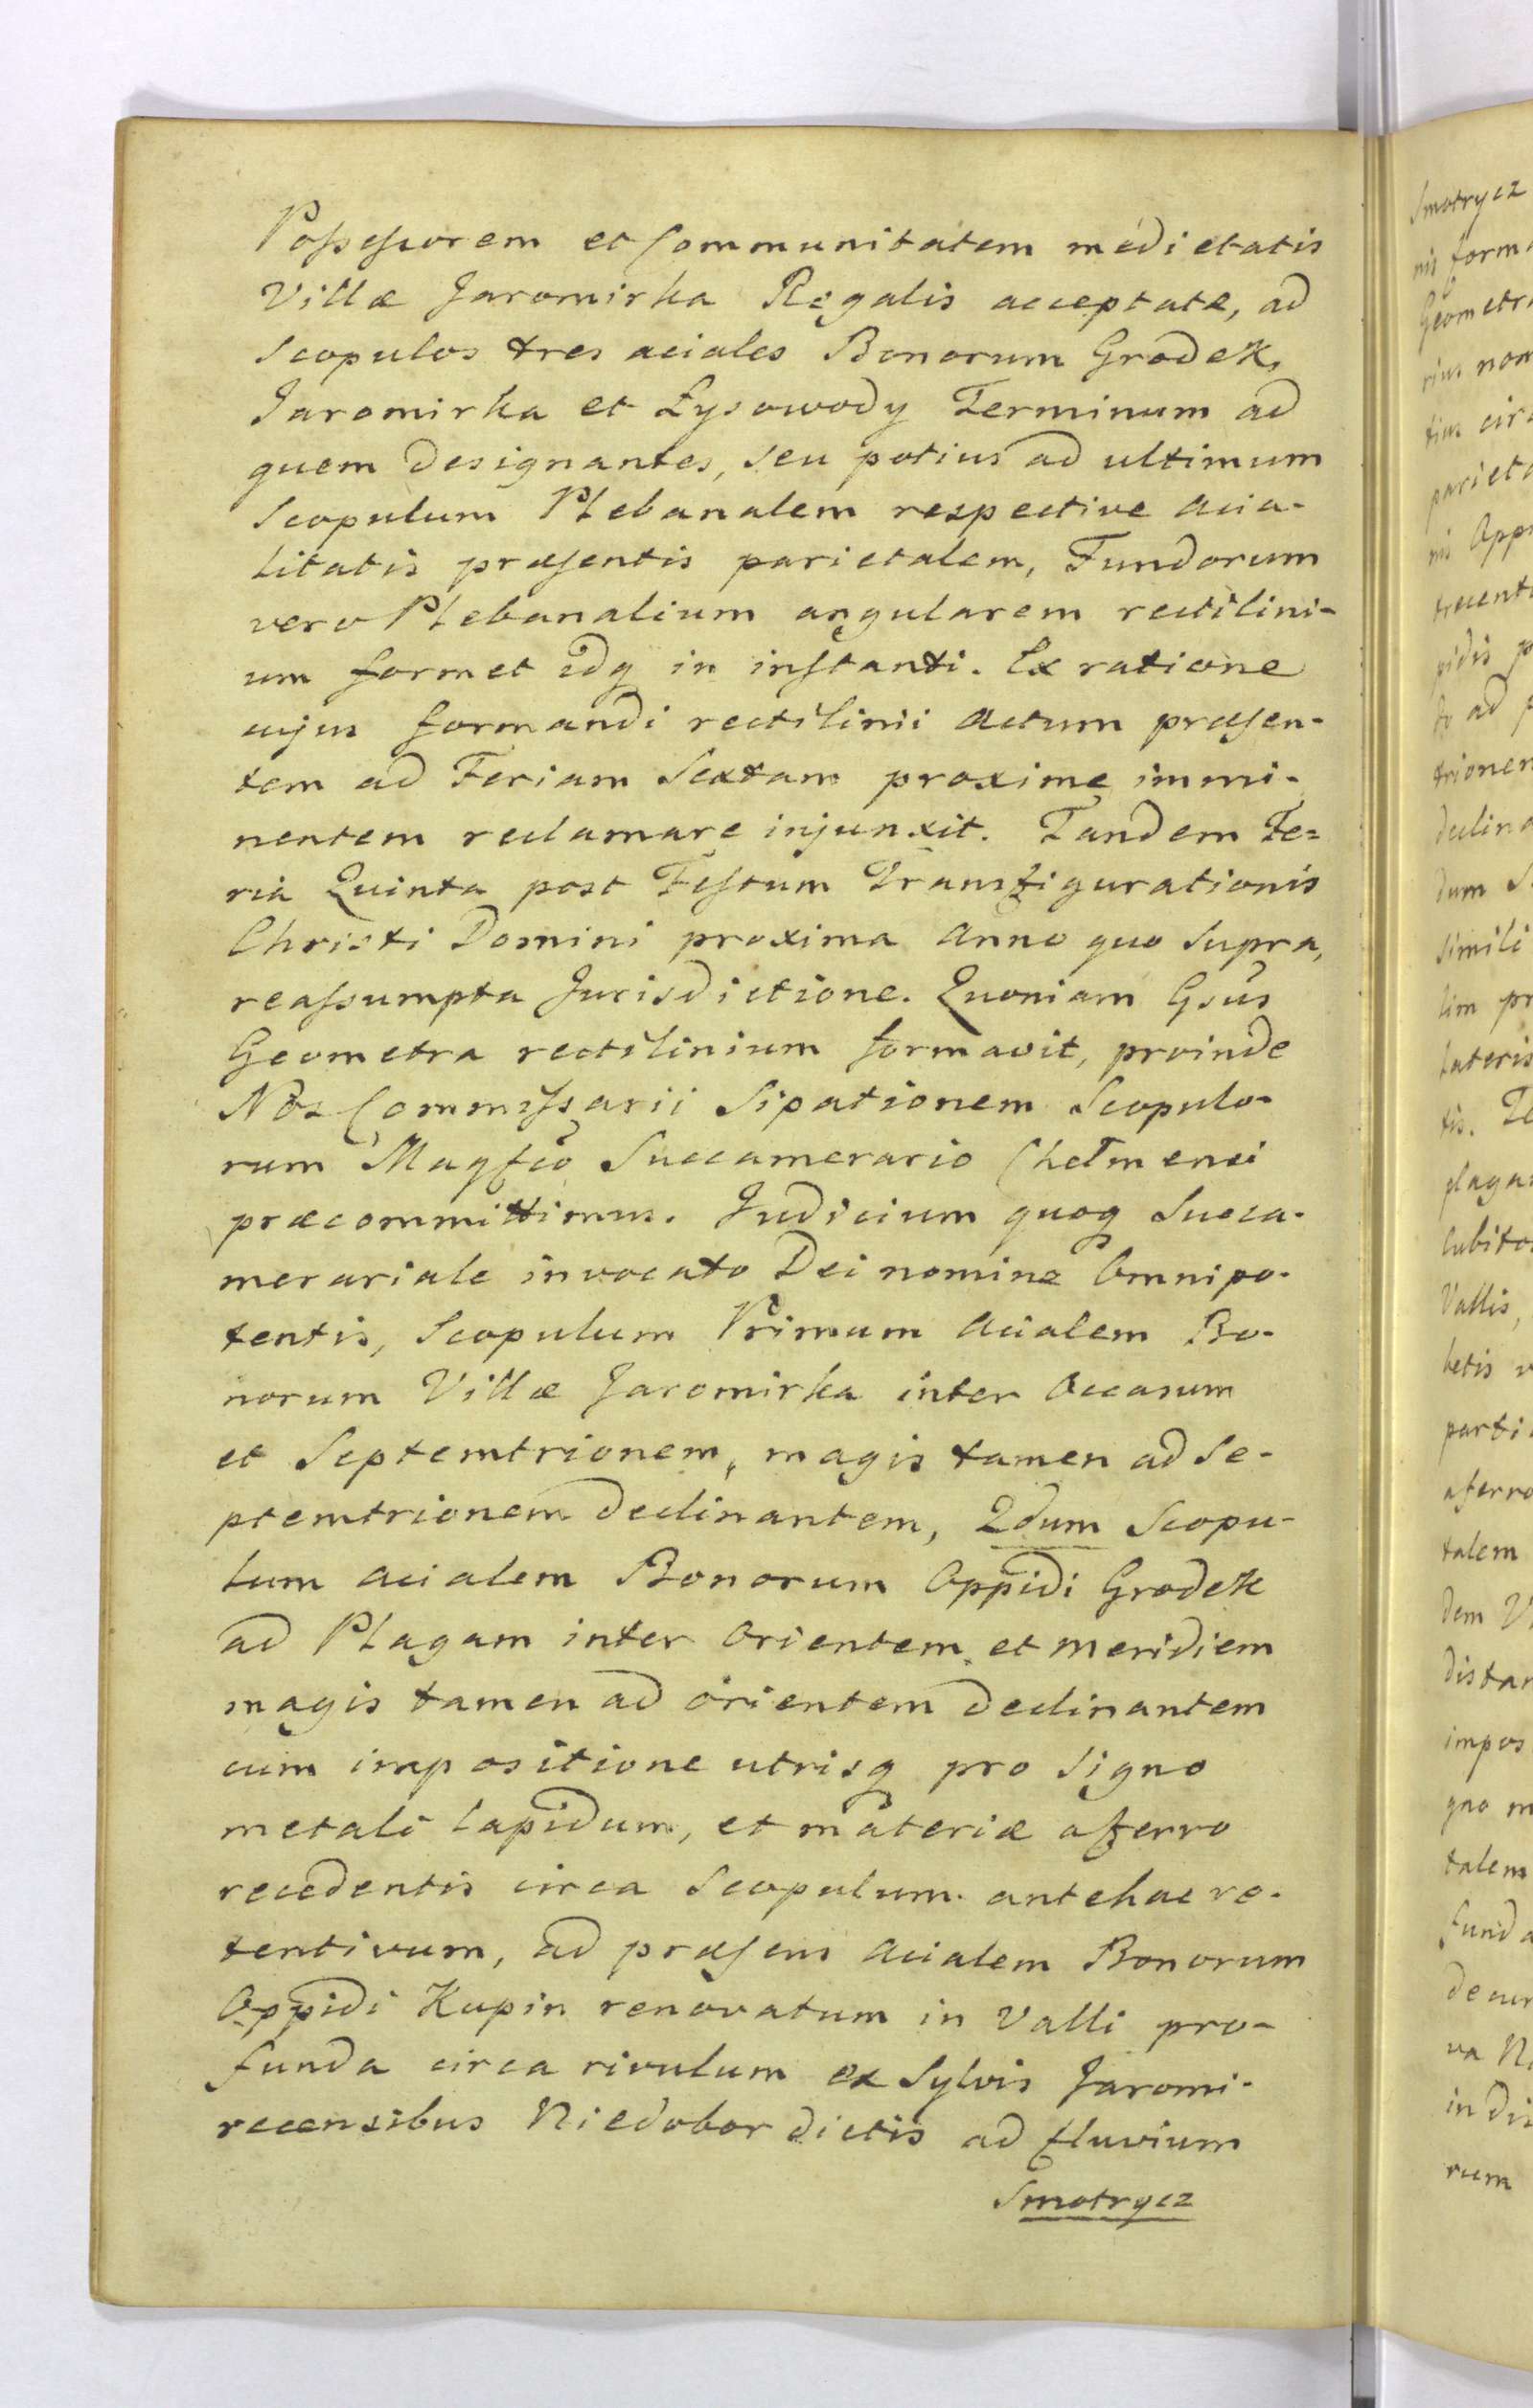 Poſseſsorem et Communitatem medietatis
Villæ Jaromirka Regalis acceptatæ, ad
Scopulos tres aciales Bonorum Grodek,
Jaromirka et Łysowody Terminum ad
quem designantes, seu potius ad ultimum
Scopulum Plebanalem respective acia-
litatis præſentis parietalem, Fundorum
vero Plebanalium angularem rectilini-
um formet idq in inſtanti. Ex ratione
cujus formandi rectilinii actum præſen-
tem ad Feriam Sextam proxime immi-
nentem reclamare injunxit. Tandem Fe=
ria Quinta post Feſtum Transfigurationis
Christi Domini proxima Anno quo supra,
reaſsumpta Jurisdictione. Quoniam Gsus
Geometra rectilinium formavit, proinde
Nos Commiſsarii Sipationem Scopulo-
rum Magfco Succamerario Chełmensi
præcommittimus. Judicium quoq Succa-
merariale invocato Dei nomine Omnipo-
tentis, Scopulum Primum Acialem Bo-
norum Villæ Jaromirka inter Occasum
et Septemtrionem, magis tamen ad Se-
ptemtrionem declinantem, 2dum Scopu-
lum acialem Bonorum Oppidi Grodek
ad Plagam inter Orientem et Meridiem
magis tamen ad orientem declinantem
cum impositione utrisq pro signo
metali lapidum, et materiæ aferro
recedentis circa Scopulum antehac re-
tentivum, ad præſens Acialem Bonorum
Oppidi Kupin renovatum in Valli pro-
funda circa rivulum ex Sylvis Jaromi-
recensibus Niedobor dictis ad fluvium
Smotrycz
Smotrycz
nis
Geometr
rius
tius
nis
pidis
trionen
declina
dum
simili
lateris
tis.
plaga
Cubito
Vallis,
parti
aferro
talem
dem
distan
impos
gno m
talem
Funda
in
rum